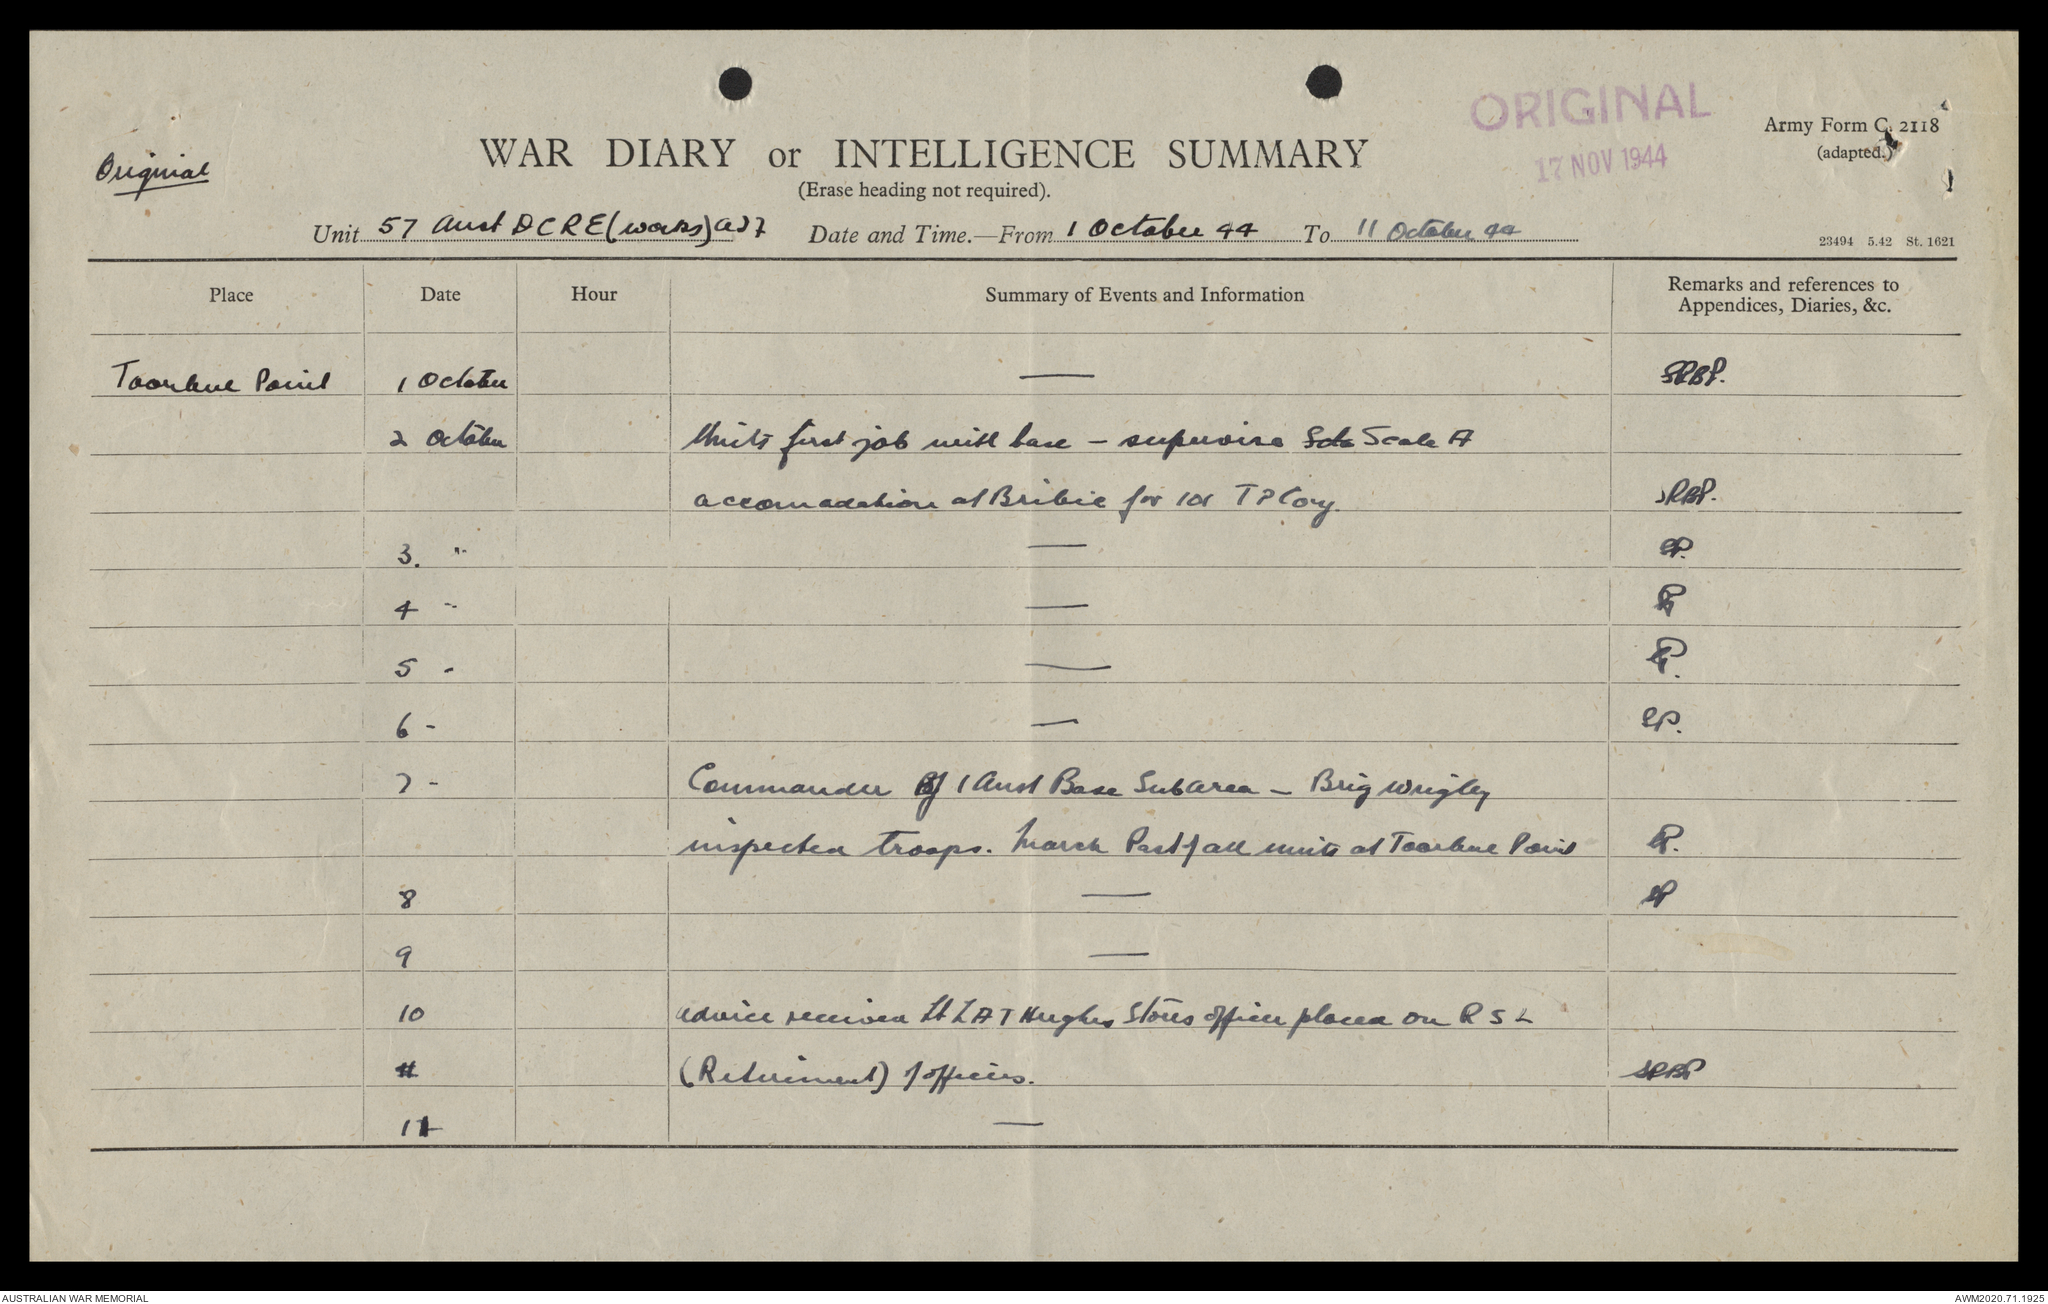 ORIGINAL
17 NOV 1944
Army Form C. 2118
(adapted.)
Original
WAR DIARY or INTELLIGENCE SUMMARY
(Erase heading not required).
Unit 57 Aust DCRE (works) AIF Date and Time.—From 1 October 44 To 11 October 44
23494 5.42 St. 1621
Place Date Hour Summary of Events and Information Remarks and references to
Appendices, Diaries, &c.
Toorbul Point 1 October — SRBP.
2 October Units first job with base - supervise Sda Scale A
accomadation at Bribie for 101 TPCoy. SRBP.
3. " — SP.
4 " —
5 " —
6 - — SP.
7 - Commander of 1 Aust Base Sub Area - Brig Wrigley
inspected troops. March Past of all units at Toorbul Point
8 — SP
9 —
10 Advice received Lt L A T Hughes Stores officer placed on R S L
11 (Retirement) of officers. SRBP
11 —
AUSTRALIAN WAR MEMORIAL AWM2020.71.1925